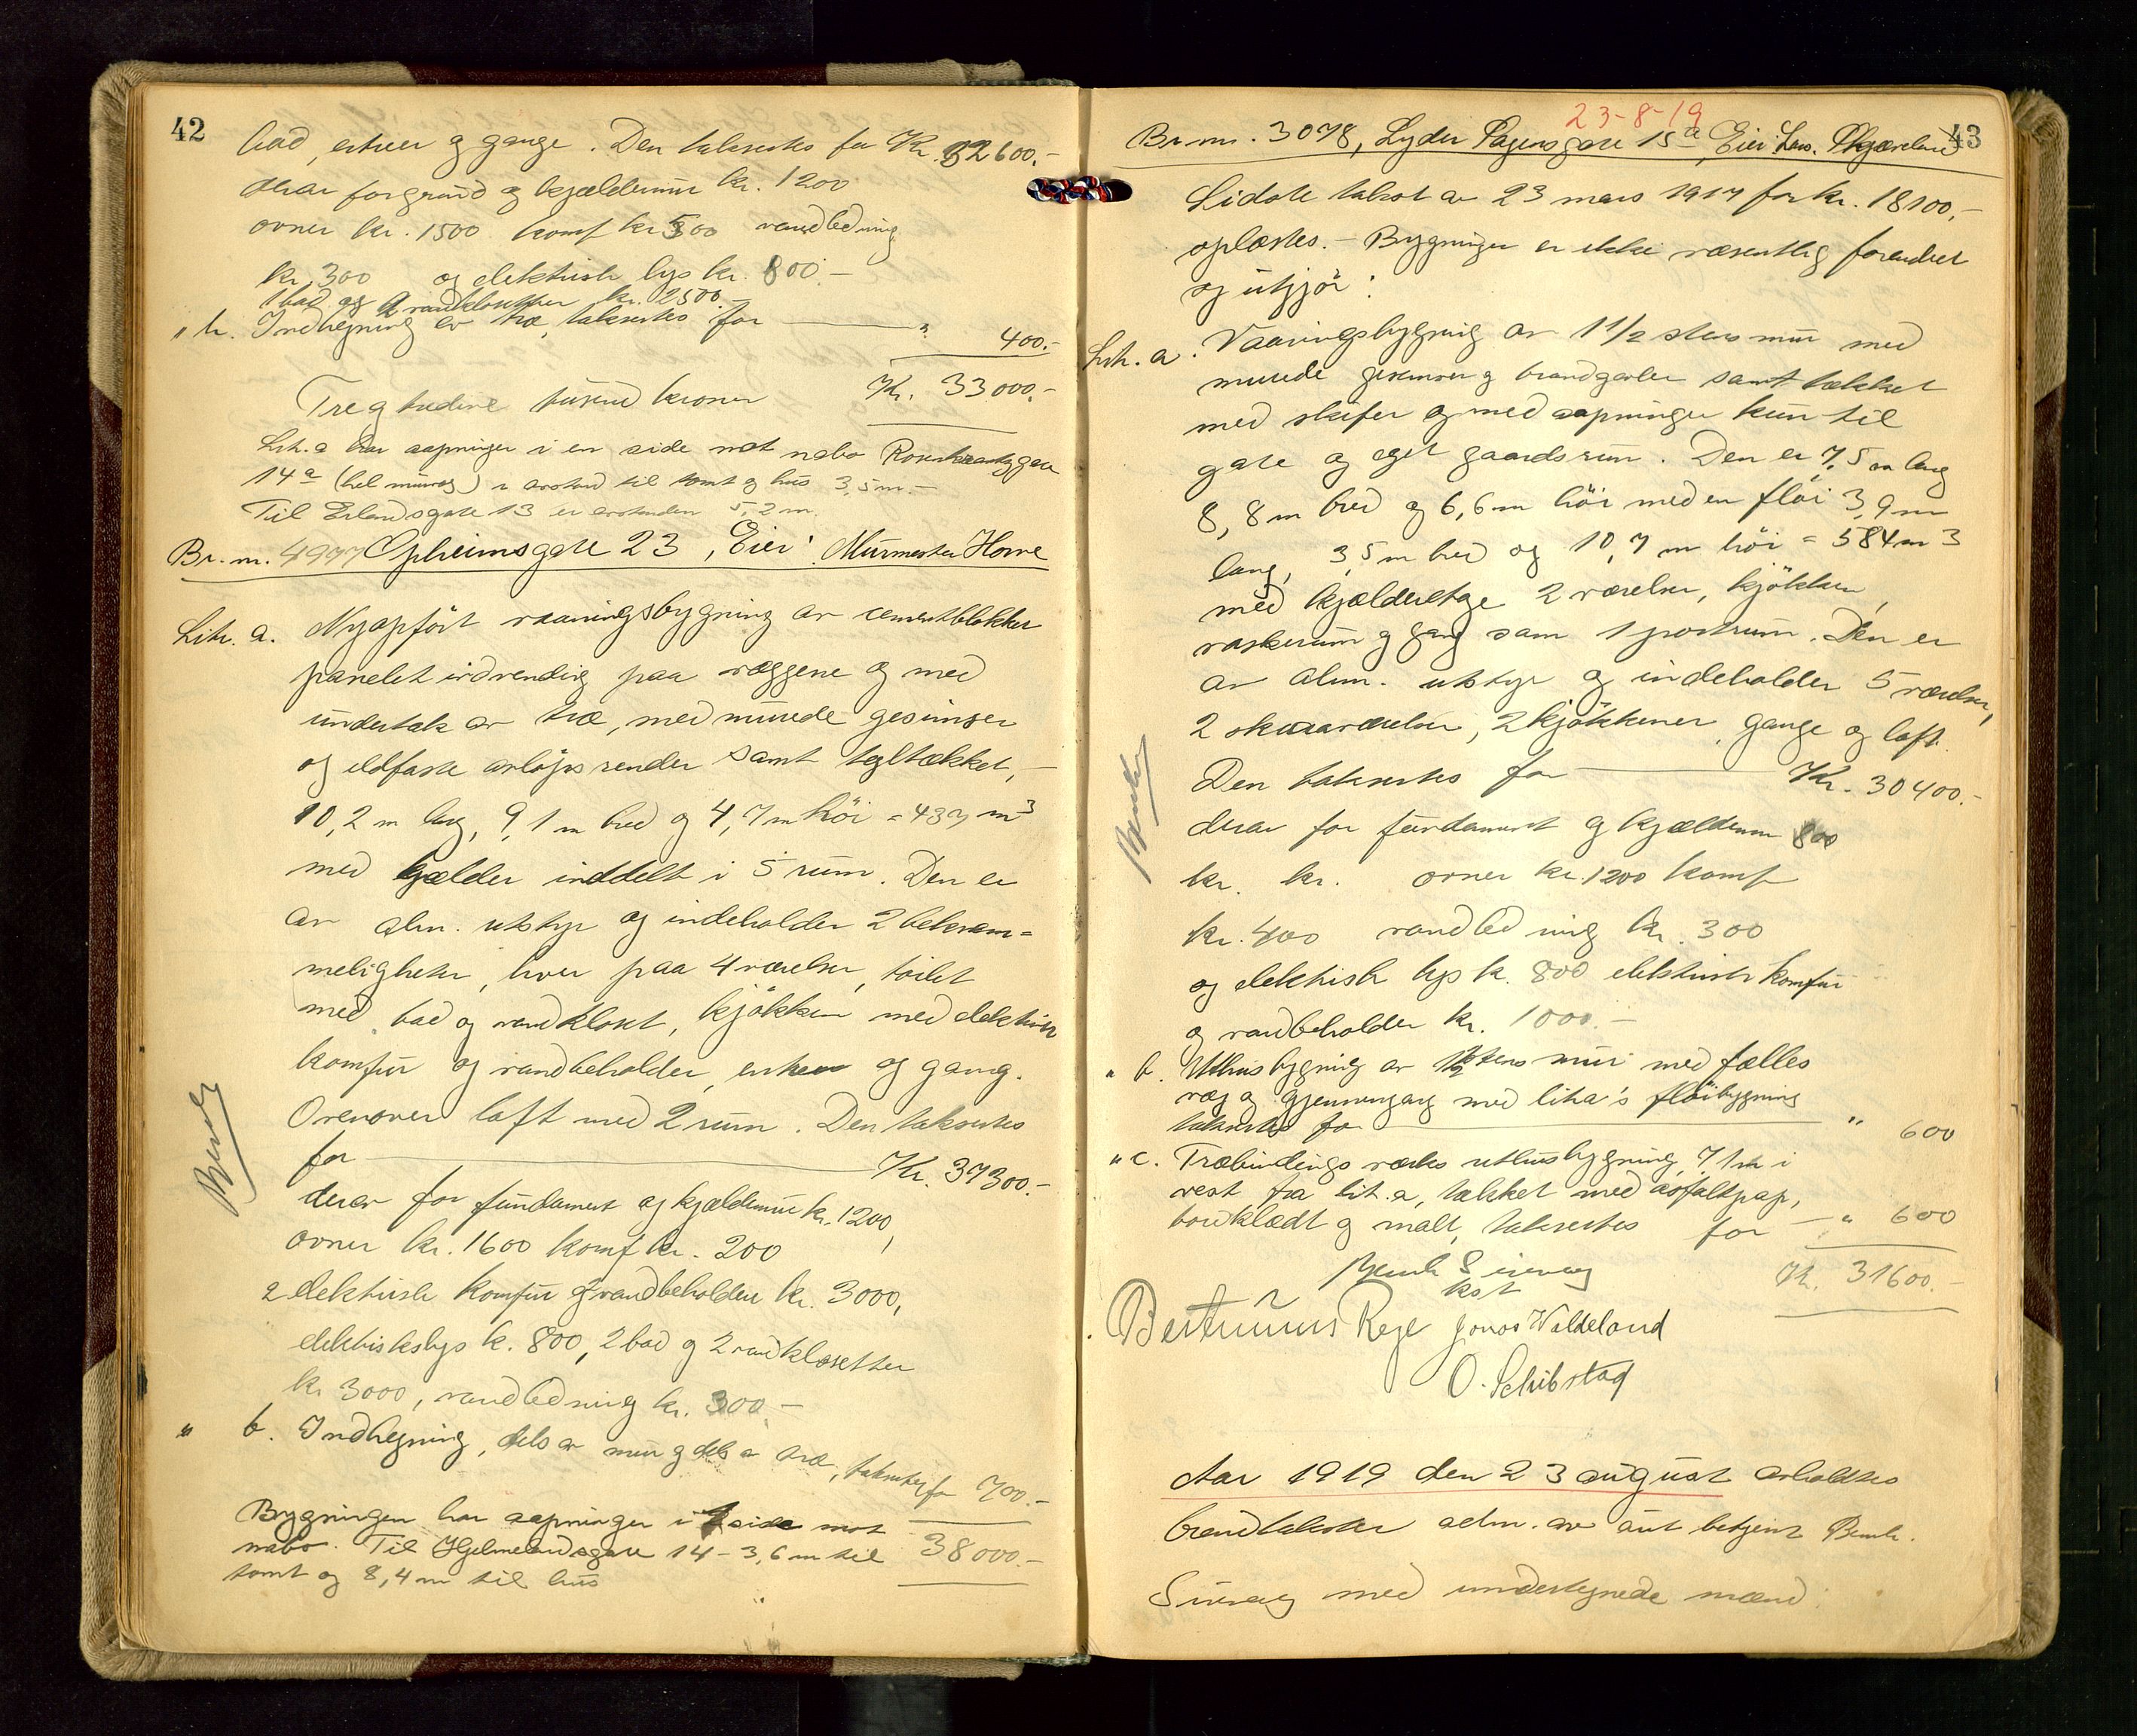 42
bad, entree og gange. Den takseres for Kr. 32600.-
derav for grund og kjældermur kr. 1200
ovner kr. 1500 komf kr 500 vandledning
kr. 300 og elektrisk lys kr. 800.-
1 bad og 2 vandklosetter kr. 2500.-
" b. Indhegning av træ, takseres for " 400.-
Treogtredive tusind kroner Kr. 33000.-
Litr. a har aapninger i en side mot nabo Rosenkrantzgate
14a (hel mur) i avstand til tomt og hus 3,5 m.-
Til Erlandsgate 13 er avstanden 5,2 m.
Br. nr. 4997 Opheimsgate 23, Eier: Murmester Hove
Litr. a. Nyopført vaaningsbygning av cementblokker
panelet indvendig paa væggene og med
undertak av træ, med murede gesimser
og ildfaste avløpsrender samt tegltækket,-
10,2 m lang, 9,1 m bred og 4,7 m høi = 437 m3
med kjælder inddelt i 5 rum. Den er
av alm. utstyr og indeholder 2 bekvem=
meligheter, hver paa 4 værelser, toilet
med bad og vandkloset, kjøkken med elektrisk
komfur og vandbeholder, entree og gang.
Ovenover loft med 2 rum. Den takseres
for Kr. 37300.-
derav for fundament og kjældermur kr. 1200,
ovner kr. 1600 komf kr. 200
2 elektrisk komfur og vandbeholdere kr. 3000,
elektrisk lys k. 800, 2 bad og 2 vandklosetter
kr 3000, vandledning kr. 300.-
" b. Indhegning, dels av mur og dels av træ, takseres for 700.-
Bygningen har aapninger i 1 side mot
nabo. Til Hjelmelandsgate 14 - 3,6 m til 38000.-
tomt og 8,4 m til hus
23-8-19
43
Br. nr. 3078, Lyder Sagensgate 15a, Eier: Lars. Skjæveland
Sidste takst av 23 mars 1917 for kr. 18100,-
oplæstes. - Bygningen er ikke væsentlig forandret
og utgjør:
Litr. a. Vaaningsbygning av 1 1/2 stens mur med
murede gesimser og brandgavler samt tækket
med skifer og med aapninger kun til
gate og eget gaardsrum. Den er 7,5 m lang
8,8 m bred og 6,6 m høi med en fløi 3,9 m
lang, 3,5 m bred og 10,7 m høi = 584 m3
med kjælderetage 2 værelser, kjøkken,
vaskerum og gang sam 1 portrum. Den er
av alm. utstyr og indeholder 5 værelser,
2 skraaværelser, 2 kjøkkener, gange og loft.
Den takseres for Kr. 30400.-
derav for fundament og kjældermur 800
kr. kr. ovner kr. 1200 komf
kr. 400 vandledning kr. 300
og elektrisk lys k. 800 elektrisk komfur
og vandbeholder kr. 1000.-
" b. Uthusbygning av 1/2 stens mur med fælles
væg og gjennemgang med litr a's fløibygning
takseres for " 600
" c. Træbindings verks uthusbygning, 7,1 m i
vest fra lit. a, tækket med asfaltpap,
bordklædt og malt, takseres for " 600
Kr. 31600.-
Bertinius Rege Jonas Waldeland
O. Schibstad
Aar 1919 den 23 august avholdtes
brandtakster adm. av aut betjent Bernh.
Sirevaag med undertegnede mænd: